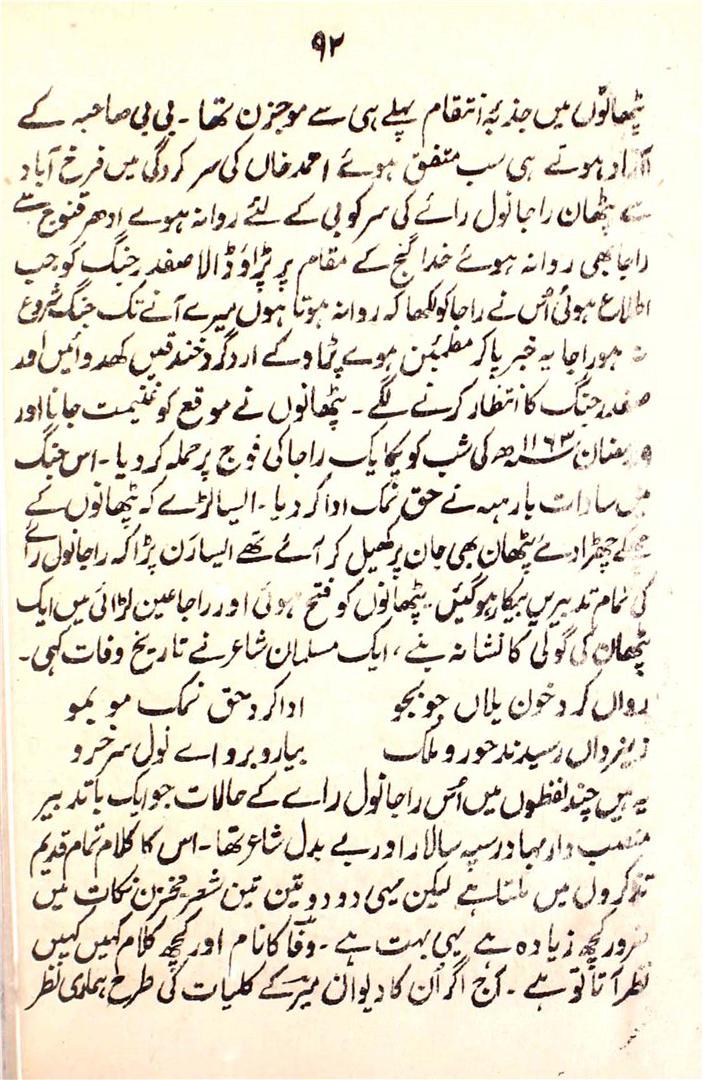 ۹۲
پٹھانوں میں جذبۂ انتقام پہلے ہی سے موجزن تھا۔ بی بی صاحبہ کے
آزاد ہوتے ہی سب متفق ہوئے احمد خاں کی سرکردگی میں فرخ آباد
سے پٹھان راجا نول رائے کی سرکوبی کے لئے روانہ ہوے ادھر قنوج سے
راجا بھی روانہ ہوئے خدا گنج کے مقام پر پڑاؤ ڈالا صفدر جنگ کو جب
اطلاع ہوئی اُس نے راجا کو لکھا کہ روانہ ہوتا ہوں میرے آنے تک جنگ شروع
نہ ہو راجا یہ خبر پا کر مطمئن ہوے پڑاو کے ارد گرد خندقیں کھدوائیں اور
صفدر جنگ کا انتظار کرنے لگے۔ پٹھانوں نے موقع کو غنیمت جانا اور
رمضان ۱۱۶۳ھ کی شب کو یکایک راجا کی فوج پر حملہ کر دیا۔ اس جنگ
میں سادات بارہہ نے حق نمک ادا کر دیا۔ ایسا لڑے کہ پٹھانوں کے
چھکے چھڑا دئے پٹھان بھی جان پر کھیل کر آئے تھے ایسا رَن پڑا کہ راجا نول رائے
کی تمام تدبیریں بیکار ہو گئیں۔ پٹھانوں کو فتح ہوئی اور راجا عین لڑائی میں ایک
پٹھان کی گولی کا نشانہ بنے، ایک مسلمان شاعر نے تاریخ وفات کہی۔
رواں کرد خون یلاں جو بجو ادا کرد حق نمک مو بمو
ز یزداں رسیدند حور و ملک بیارو برو اے نول سرخرو
یہ ہیں چند لفظوں میں اُس راجا نول راے کے حالات جو ایک با تدبیر
منصب دار بہادر سپہ سالار اور بے بدل شاعر تھا۔ اس کا کلام تمام قدیم
تذکروں میں ملتا ہے لیکن یہی دو دو تین تین شعر مخزن نکات میں
ضرور کچھ زیادہ ہے یہی بہت ہے۔ وفا کا نام اور کچھ کلام کہیں کہیں
نظر آتا تو ہے۔ آج اگر اُن کا دیوان میر کے کلیات کی طرح ہماری نظر